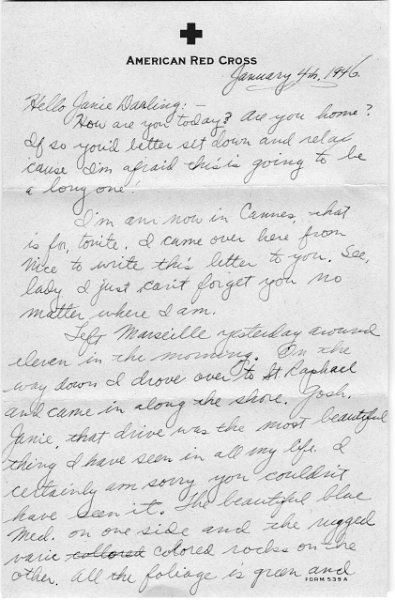 AMERICAN RED CROSS
January 4th, 1946.
Hello Janie Darling: -
How are you today? Are you home?
If so you'd letter sit down and relax
'cause I'm afraid this is going to be
a long one!
I'm am now in Cannes, that
is for, tonite. I came over here from
Nice to write this letter to you. See,
lady I just can't forget you no
matter where I am.
Left Marseille yesterday around
eleven in the morning. On the
way down I drove over to St Raphael
and came in along the shore. Gosh,
Janie, that drive was the most beautiful
thing I have seen in all my life. I
certainly am sorry you couldn't
have seen it. The beautiful blue
Med. on one side and the rugged
varie collored colored rocks on the
other. All the foliage is green and
FORM 539A